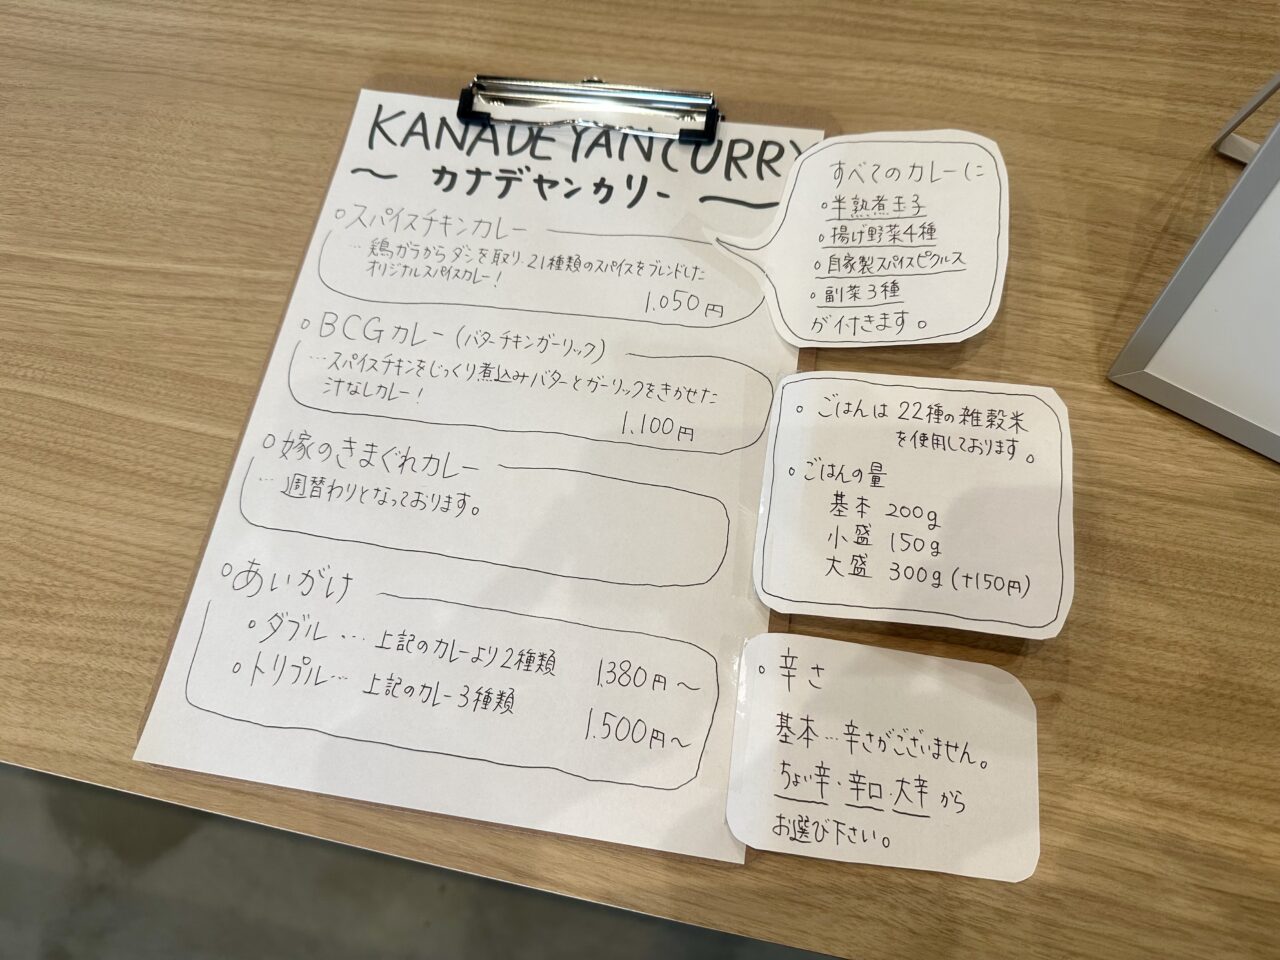 KANADEYANCURRY
～ カナデヤンカリー ～
○スパイスチキンカレー
…鶏ガラからダシを取り、21種類のスパイスをブレンドした
オリジナルスパイスカレー！
1.050円
○BCGカレー（バターチキンガーリック）
…スパイスチキンをじっくり煮込みバターとガーリックをきかせた
汁なしカレー！
1.100円
○嫁のきまぐれカレー
…週替わりとなっております。
○あいがけ
○ダブル…上記のカレーより2種類 1380円～
○トリプル…上記のカレー3種類 1.500円～
すべてのカレーに
○半熟煮玉子
○揚げ野菜4種
○自家製スパイスピクルス
○副菜3種
が付きます。
○ごはんは22種の雑穀米
を使用しております。
○ごはんの量
基本 200g
小盛 150g
大盛 300g(+150円)
○辛さ
基本…辛さがございません。
ちょい辛・辛口・大辛から
お選び下さい。